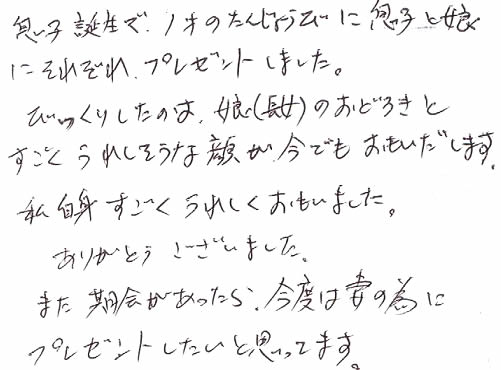 息子誕生で、1才のたんじょうびに息子と娘
にそれぞれ、プレゼントしました。
びっくりしたのは、娘(長女)のおどろきと
すごくうれしそうな顔が今でもおもいだします。
私自身すごくうれしくおもいました。
ありがとうございました。
また期会があったら、今度は妻の為に
プレゼントしたいと思ってます。